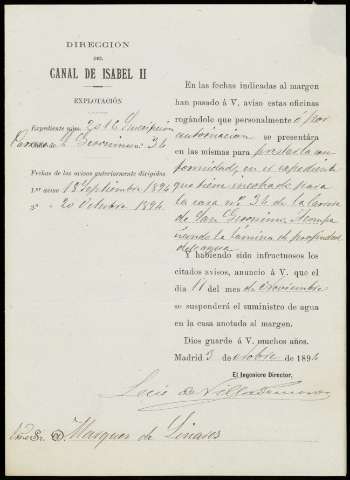 DIRECCION
DEL
CANAL DE ISABEL II
EXPLOTACIÓN
Expediente núm. 2516 Suscripción
Carrera de S. Geronimo n.º 34
Fechas de los avisos anteriormente dirigidos
1.er aviso 18 Septiembre 1894
2.º - 20 Octubre 1894
En las fechas indicadas al margen
han pasado á V. aviso estas oficinas
rogándole que personalmente ó por
autorizacion se presentára
en las mismas para prestar la con
formidad, en el expediente
que tiene incohado para
la casa nº 34 de la Carrera
de San Geronimo. Acompa
ñando la lámina de propiedad
del agua
Y habiendo sido infructuosos los
citados avisos, anuncio á V. que el
dia 11 del mes de Noviembre
se suspenderá el suministro de agua
en la casa anotada al margen.
Dios guarde á V. muchos años.
Madrid 3 de de 1894
El Ingeniero Director,
Luis de
Sr. D. Marques de Linares